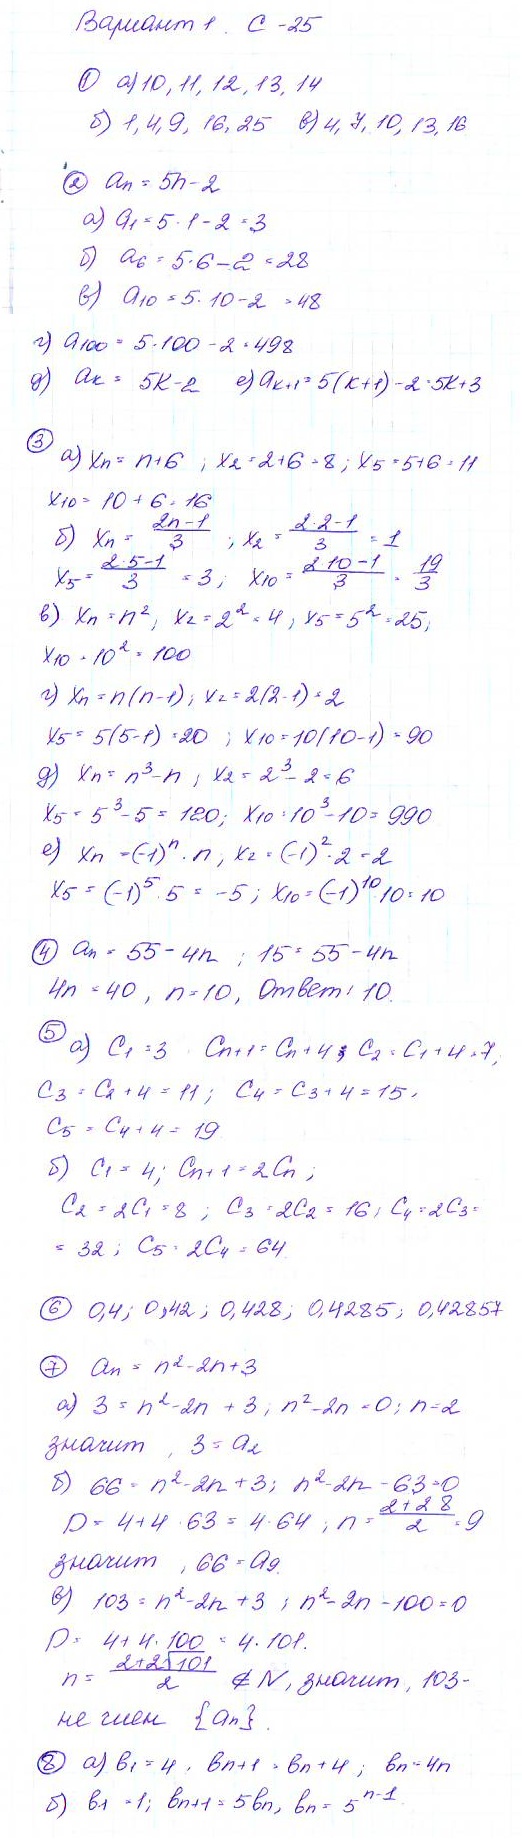 Вариант 1. С-25
① а) 10, 11, 12, 13, 14
б) 1, 4, 9, 16, 25 в) 4, 7, 10, 13, 16
② aₙ = 5n - 2
а) a₁ = 5·1 - 2 = 3
б) a₆ = 5·6 - 2 = 28
в) a₁₀ = 5·10 - 2 = 48
г) a₁₀₀ = 5·100 - 2 = 498
д) aₖ = 5k - 2 е) aₖ₊₁ = 5(k+1) - 2 = 5k+3
③ а) xₙ = n+6 ; x₂ = 2+6 = 8 ; x₅ = 5+6 = 11
x₁₀ = 10 + 6 = 16
б) xₙ = (2n-1)/3 ; x₂ = (2·2-1)/3 = 1
x₅ = (2·5-1)/3 = 3; x₁₀ = (2·10-1)/3 = 19/3
в) xₙ = n²; x₂ = 2² = 4; x₅ = 5² = 25;
x₁₀ = 10² = 100
г) xₙ = n(n-1); x₂ = 2(2-1) = 2
x₅ = 5(5-1) = 20 ; x₁₀ = 10(10-1) = 90
д) xₙ = n³-n ; x₂ = 2³-2 = 6
x₅ = 5³-5 = 120; x₁₀ = 10³-10 = 990
е) xₙ = (-1)ⁿ·n; x₂ = (-1)²·2 = 2
x₅ = (-1)⁵·5 = -5; x₁₀ = (-1)¹⁰·10 = 10
④ aₙ = 55 - 4n ; 15 = 55 - 4n
4n = 40, n = 10, Ответ: 10.
⑤ а) c₁ = 3 cₙ₊₁ = cₙ + 4; c₂ = c₁ + 4 = 7;
c₃ = c₂ + 4 = 11; c₄ = c₃ + 4 = 15;
c₅ = c₄ + 4 = 19
б) c₁ = 4; cₙ₊₁ = 2cₙ ;
c₂ = 2c₁ = 8 ; c₃ = 2c₂ = 16; c₄ = 2c₃ =
= 32; c₅ = 2c₄ = 64
⑥ 0,4; 0,42; 0,428; 0,4285; 0,42857
⑦ aₙ = n² - 2n + 3
а) 3 = n² - 2n + 3; n² - 2n = 0; n = 2
значит, 3 = a₂
б) 66 = n² - 2n + 3; n² - 2n - 63 = 0
D = 4 + 4·63 = 4·64 ; n = (2+2·8)/2 = 9
значит, 66 = a₉.
в) 103 = n² - 2n + 3 ; n² - 2n - 100 = 0
D = 4 + 4·100 = 4·101.
n = (2+2√101)/2 ∉ N, значит, 103-
не член {aₙ}.
⑧ а) b₁ = 4, bₙ₊₁ = bₙ + 4; bₙ = 4n
б) b₁ = 1; bₙ₊₁ = 5bₙ, bₙ = 5ⁿ⁻¹.